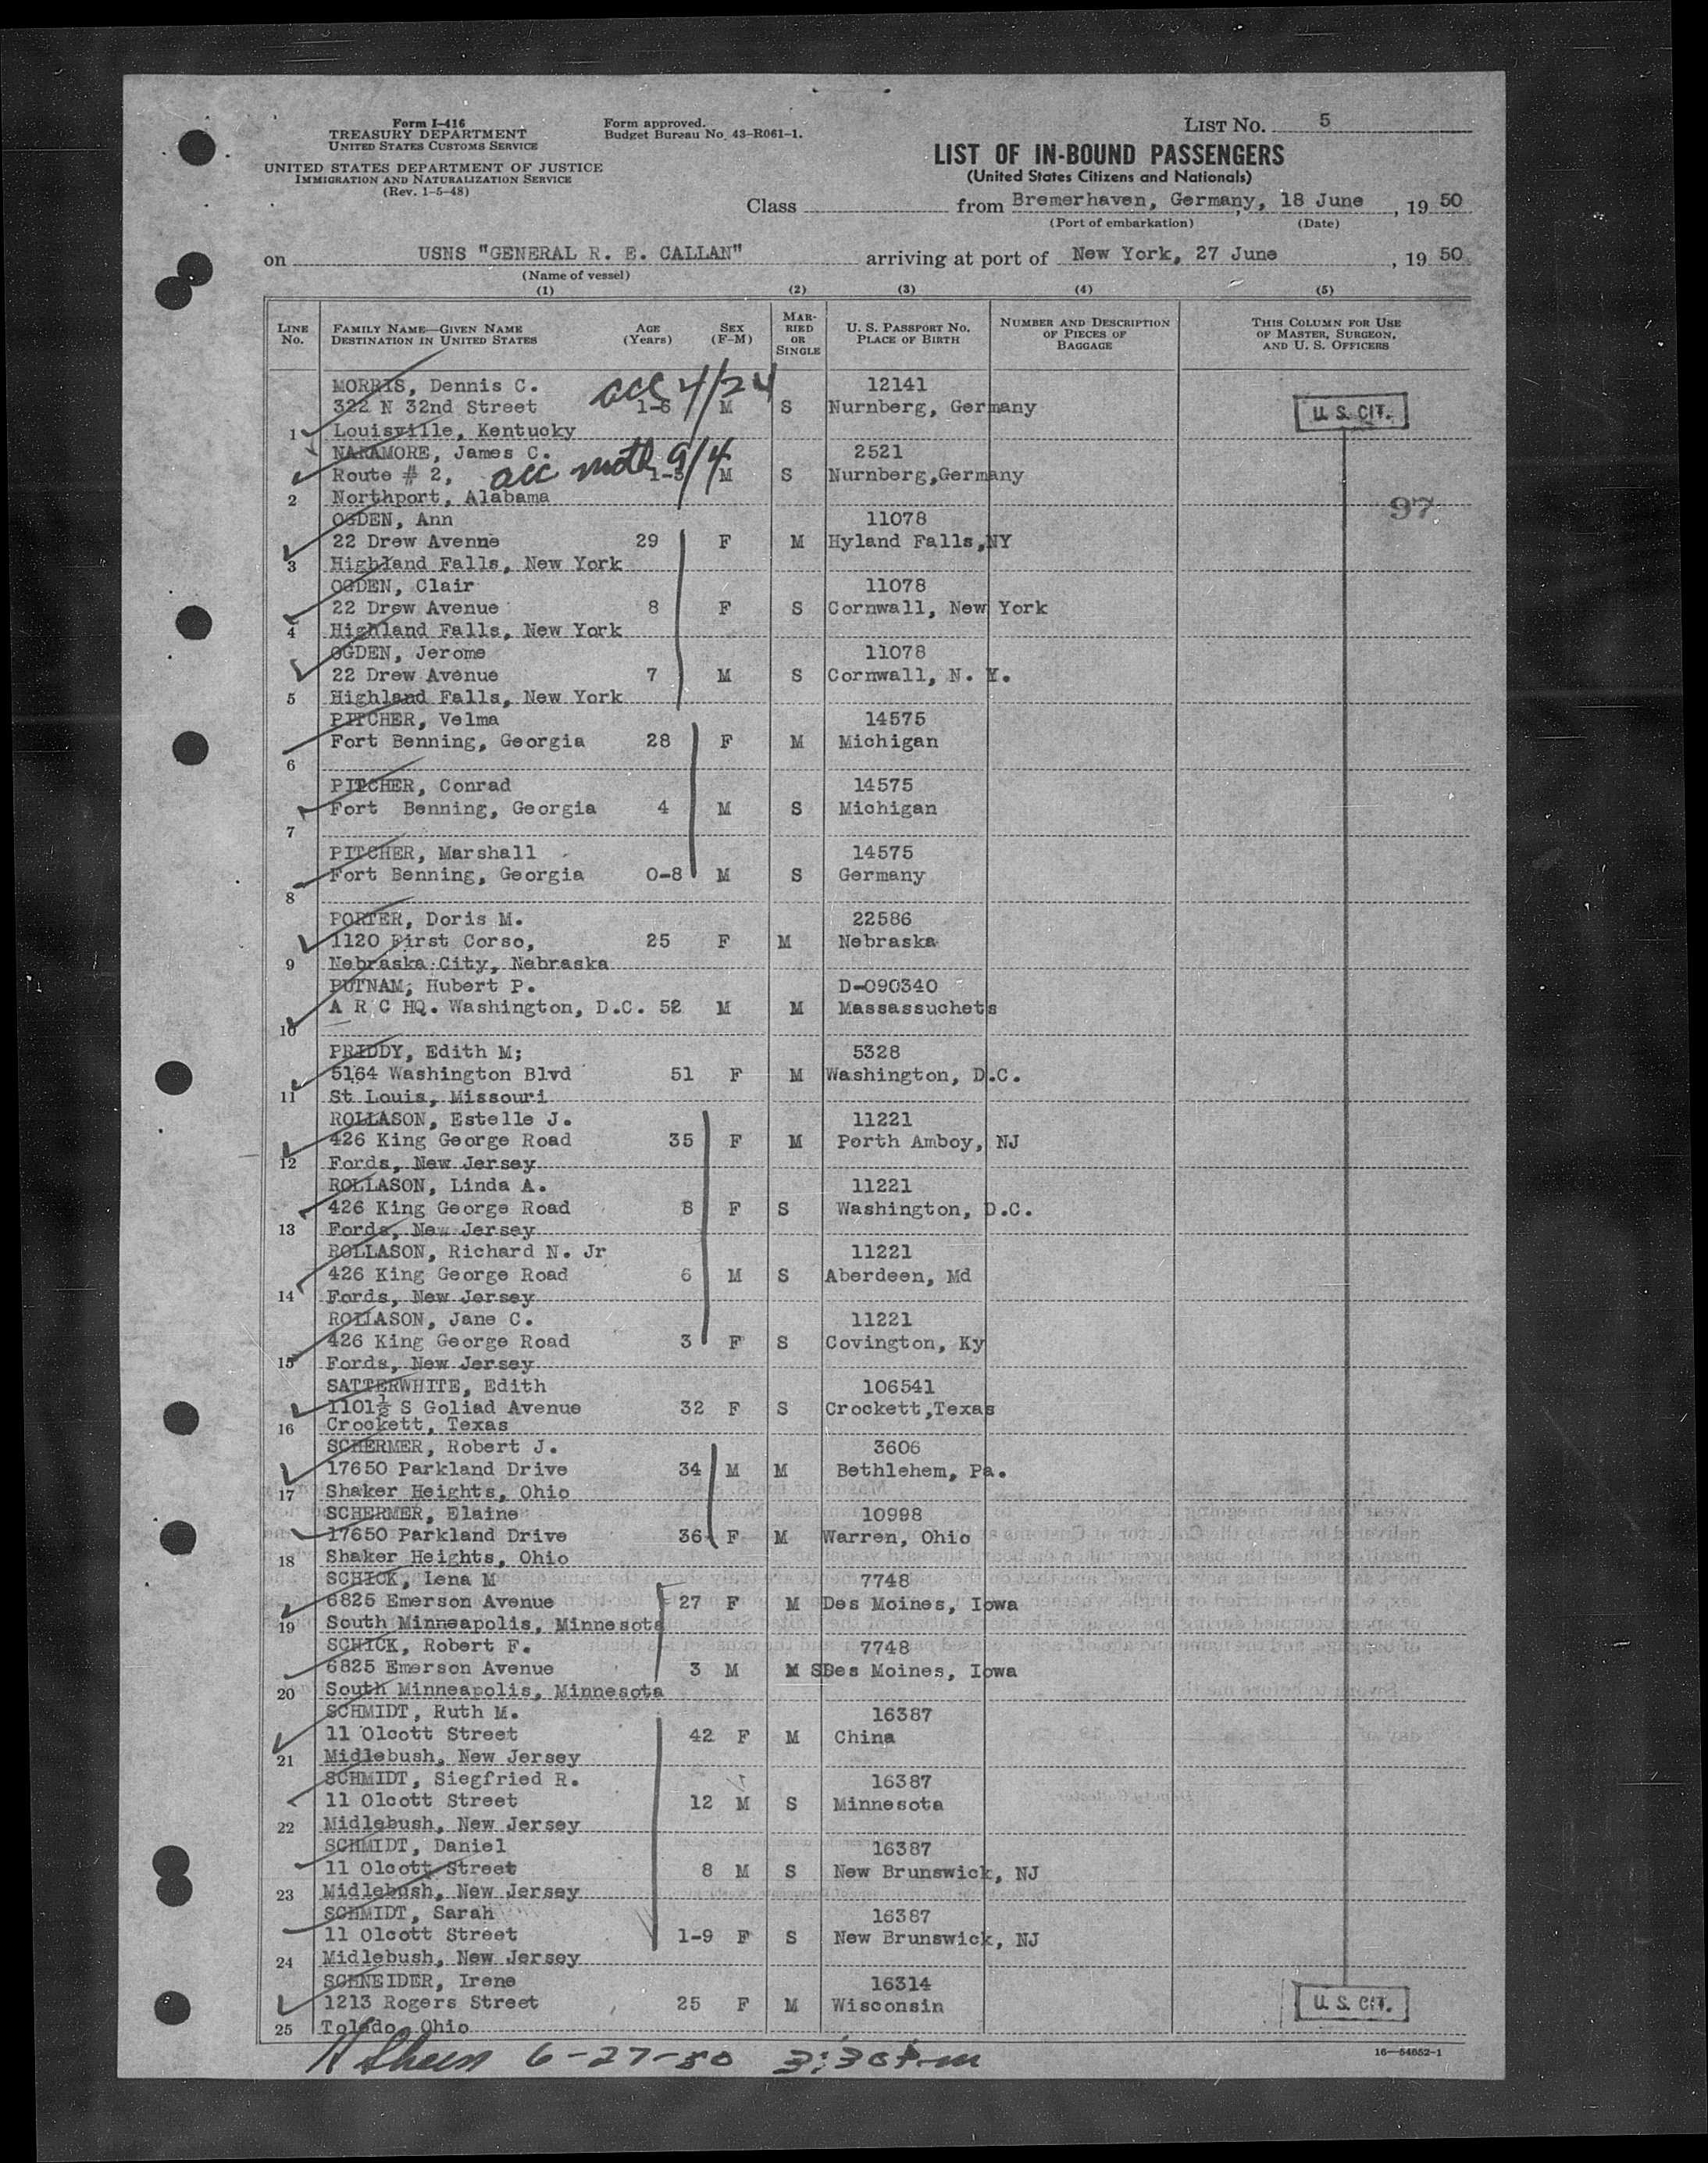 Form I-416
TREASURY DEPARTMENT
UNITED STATES CUSTOMS SERVICE
UNITED STATES DEPARTMENT OF JUSTICE
IMMIGRATION AND NATURALIZATION SERVICE
(Rev. 1-5-48)
Form approved.
Budget Bureau No. 43-R061-1.
LIST NO. 5
LIST OF IN-BOUND PASSENGERS
(United States Citizens and Nationals)
Class from Bremerhaven, Germany, 18 June, 19 50
(Port of embarkation) (Date)
on USNS "GENERAL R. E. CALLAN" arriving at port of New York, 27 June, 19 50
(Name of vessel)
(1) (2) (3) (4) (5)
LINE NO. FAMILY NAME—GIVEN NAME DESTINATION IN UNITED STATES AGE (Years) SEX (F-M) MARRIED OR SINGLE U. S. PASSPORT NO. PLACE OF BIRTH NUMBER AND DESCRIPTION OF PIECES OF BAGGAGE THIS COLUMN FOR USE OF MASTER, SURGEON, AND U. S. OFFICERS
MORRIS, Dennis C. acc 4/24 12141
322 N 32nd Street 1-6 M S Nurnberg, Germany U. S. CIT.
1 Louisville, Kentucky
NARAMORE, James C. 2521
Route # 2, acc moth 9/4 M S Nurnberg,Germany
2 Northport, Alabama 97
OGDEN, Ann 11078
22 Drew Avenne 29 F M Hyland Falls,NY
3 Highland Falls, New York
OGDEN, Clair 11078
22 Drew Avenue 8 F S Cornwall, New York
4 Highland Falls, New York
OGDEN, Jerome 11078
22 Drew Avenue 7 M S Cornwall, N. Y.
5 Highland Falls, New York
PITCHER, Velma 14575
Fort Benning, Georgia 28 F M Michigan
6
PITCHER, Conrad 14575
Fort Benning, Georgia 4 M S Michigan
7
PITCHER, Marshall 14575
Fort Benning, Georgia 0-8 M S Germany
8
PORTER, Doris M. 22586
1120 First Corso, 25 F M Nebraska
9 Nebraska City, Nebraska
PUTNAM, Hubert P. D-090340
A R C HQ. Washington, D.C. 52 M M Massassuchets
10
PRIDDY, Edith M; 5328
5164 Washington Blvd 51 F M Washington, D.C.
11 St Louis, Missouri
ROLLASON, Estelle J. 11221
426 King George Road 35 F M Perth Amboy, NJ
12 Fords, New Jersey
ROLLASON, Linda A. 11221
426 King George Road 8 F S Washington, D.C.
13 Fords, New Jersey
ROLLASON, Richard N. Jr 11221
426 King George Road 6 M S Aberdeen, Md
14 Fords, New Jersey
ROLLASON, Jane C. 11221
426 King George Road 3 F S Covington, Ky
15 Fords, New Jersey
SATTERWHITE, Edith 106541
1101½ S Goliad Avenue 32 F S Crockett,Texas
16 Crockett, Texas
SCHERMER, Robert J. 3606
17650 Parkland Drive 34 M M Bethlehem, Pa.
17 Shaker Heights, Ohio
SCHERMER, Elaine 10998
17650 Parkland Drive 36 F M Warren, Ohio
18 Shaker Heights, Ohio
SCHICK, Lena M 7748
6825 Emerson Avenue 27 F M Des Moines, Iowa
19 South Minneapolis, Minnesota
SCHICK, Robert F. 7748
6825 Emerson Avenue 3 M M S Des Moines, Iowa
20 South Minneapolis, Minnesota
SCHMIDT, Ruth M. 16387
11 Olcott Street 42 F M China
21 Midlebush, New Jersey
SCHMIDT, Siegfried R. 16387
11 Olcott Street 12 M S Minnesota
22 Midlebush, New Jersey
SCHMIDT, Daniel 16387
11 Olcott Street 8 M S New Brunswick, NJ
23 Midlebush, New Jersey
SCHMIDT, Sarah 16387
11 Olcott Street 1-9 F S New Brunswick, NJ
24 Midlebush, New Jersey
SCHNEIDER, Irene 16314
1213 Rogers Street 25 F M Wisconsin U. S. CIT.
25 Toledo, Ohio
6-27-50 3:30 P.m
16—54652-1